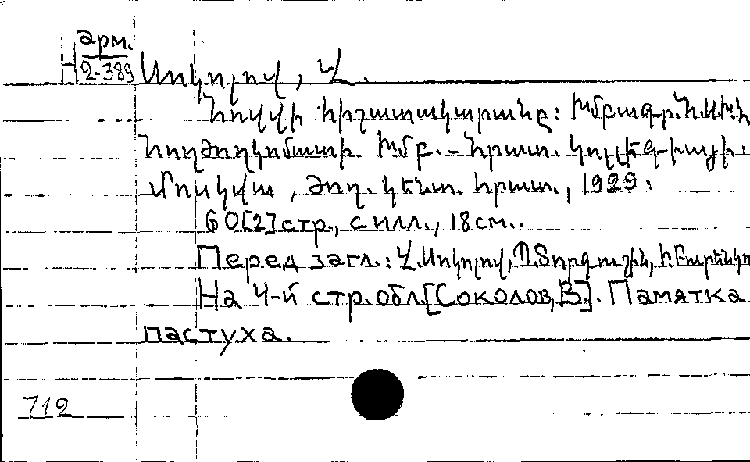 арм.
Н 2-389
Սոկոլով, Վ.
Հովվի հիշատակարանը: Խմբագր.
Հողժողկոմատի Խմբ.-հրատ. կոլլեգիայի.
Մոսկվա, Ժող. կենտ. հրատ., 1929:
60[2]стр., с илл., 18см..
Перед загл.: Վ.Սոկոլով,
На 4-й стр. обл[Соколов,В.]. Памятка
пастуха.
712